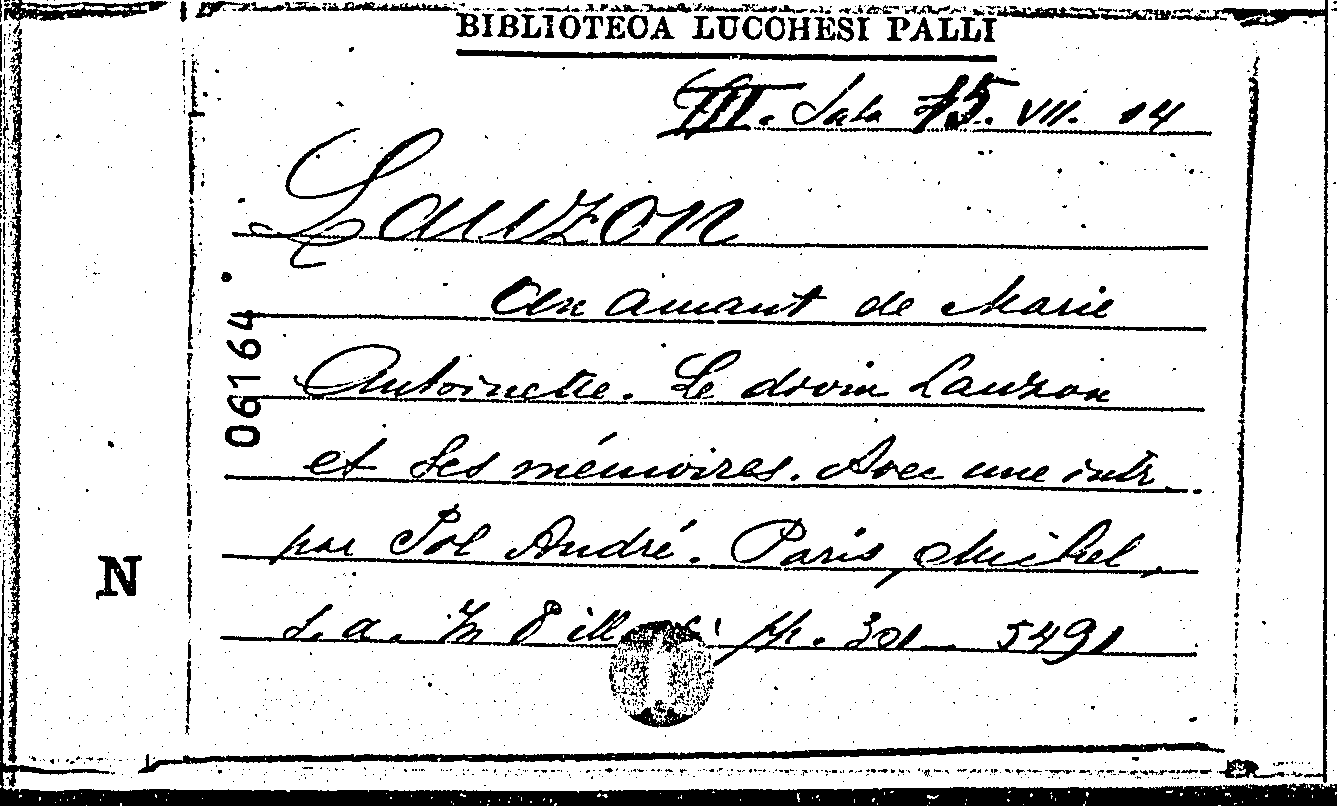 BIBLIOTECA LUCCHESI PALLI
III. Sala 15. VII. 14
Lauzon
Un amant de Marie
Antoinette. Le divin Lauzon
et ses mémoires. Avec une intr.
par Pol André. Paris, Michel,
s. a. In 8 ill. pp. 301 5491
06164
N